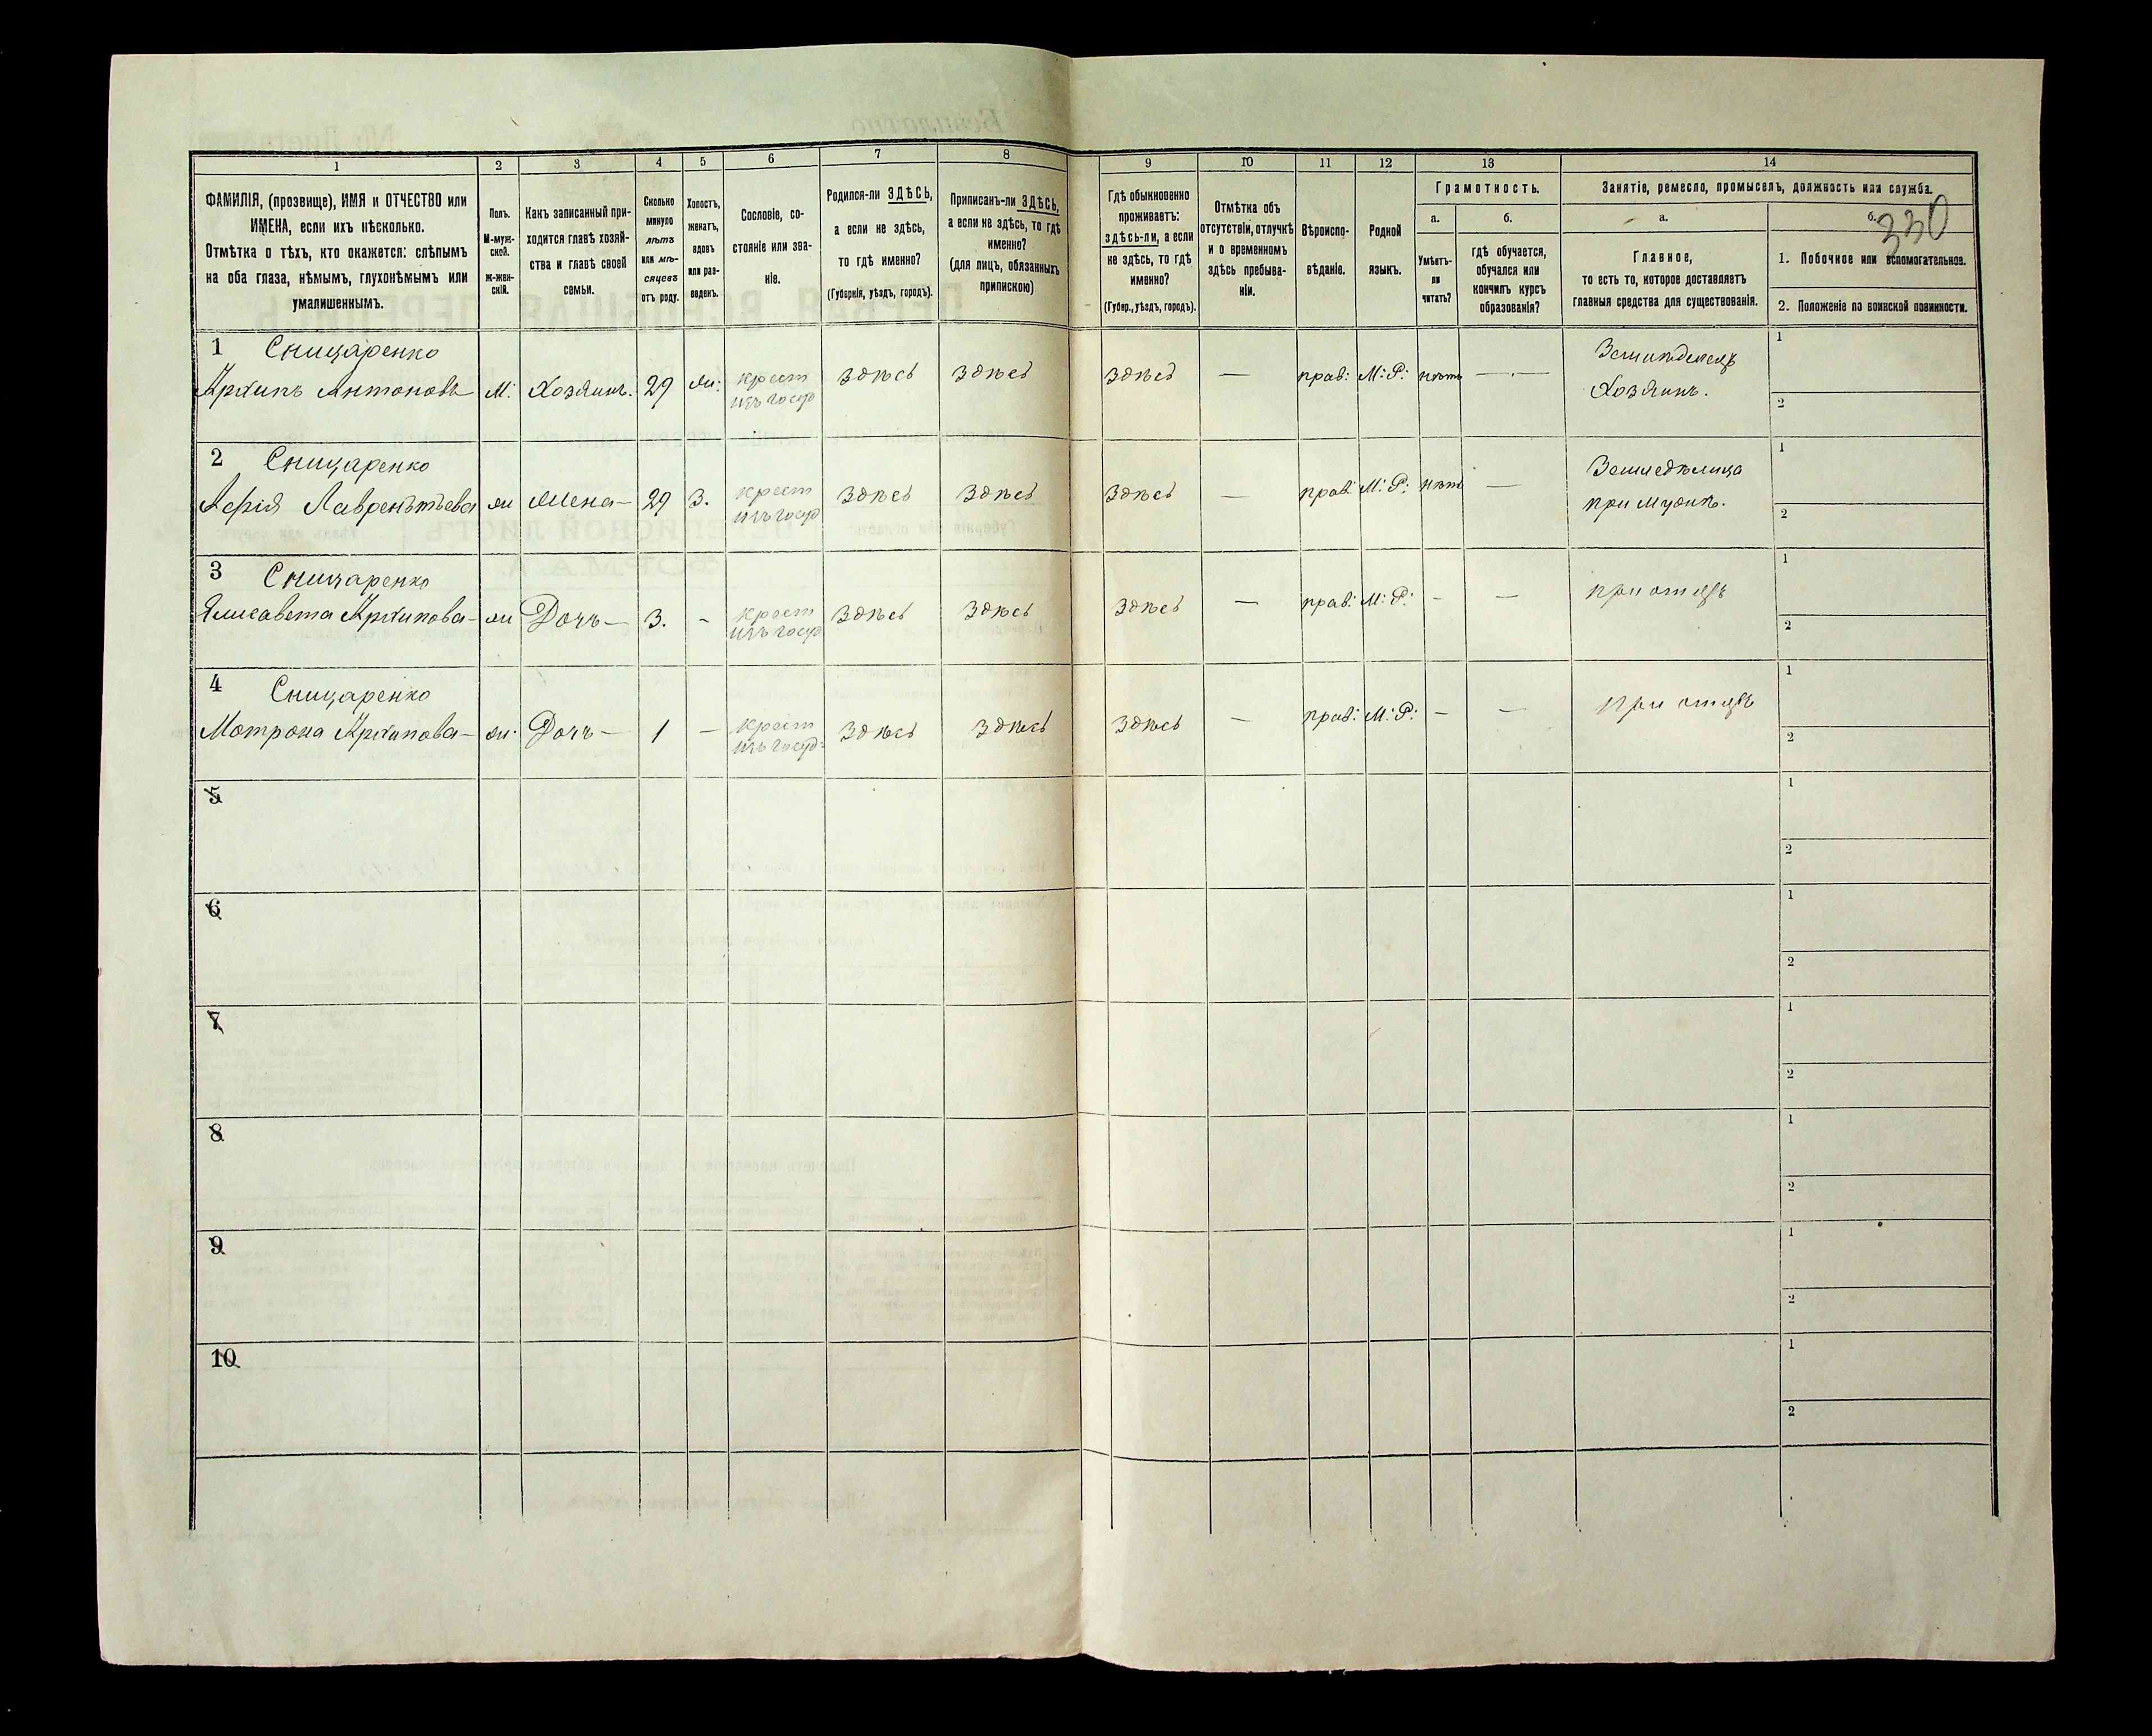 330
1 2 3 4 5 6 7 8 9 10 11 12 13 14
ФАМИЛІЯ, (прозвище), ИМЯ и ОТЧЕСТВО или
ИМЕНА, если ихъ нѣсколько.
Отмѣтка о тѣхъ, кто окажется: слѣпымъ
на оба глаза, нѣмымъ, глухонѣмымъ или
умалишеннымъ.
Полъ.
М-муж-
ской.
ж-жен-
скій.
Какъ записанный при-
ходится главѣ хозяй-
ства и главѣ своей
семьи.
Сколько
минуло
лѣтъ
или мѣ-
сяцевъ
отъ роду.
Холостъ,
женатъ,
вдовъ
или раз-
веденъ.
Сословіе, со-
стояніе или зва-
ніе.
Родился-ли ЗДѢСЬ,
а если не здѣсь,
то гдѣ именно?
(Губернія, уѣздъ, городъ).
Приписанъ-ли ЗДѢСЬ,
а если не здѣсь, то гдѣ
именно?
(для лицъ, обязанныхъ
припискою)
Гдѣ обыкновенно
проживаетъ:
здѣсь-ли, а если
не здѣсь, то гдѣ
именно?
(Губер., уѣздъ, городъ).
Отмѣтка объ
отсутствіи, отлучкѣ
и о временномъ
здѣсь пребыва-
ніи.
Вѣроиспо-
вѣданіе.
Родной
языкъ.
Грамотность.
а.
Умѣетъ-
ли
читать?
б.
гдѣ обучается,
обучался или
кончилъ курсъ
образованія?
Занятіе, ремесло, промыселъ, должность или служба.
а.
Главное,
то есть то, которое доставляетъ
главныя средства для существованія.
б.
1. Побочное или вспомогательное.
2. Положеніе по воинской повинности.
1 Сницаренко
Архипъ Антоновъ М. Хозяинъ. 29 ж: крест здѣсь здѣсь здѣсь — прав: М: Р: нѣтъ — Земледелецъ 1
изъ госуд Хозяинъ. 2
2 Сницаренко
Лаврентьева ж Жена — 29 З. крест здѣсь здѣсь здѣсь — прав: М: Р: нѣтъ — 1
изъ госуд при мужѣ. 2
3 Сницаренко
Елисавета Архипова — ж Дочь — 3. - крест здѣсь здѣсь здѣсь — прав: М: Р: - — при отцѣ 1
изъ госуд 2
4 Сницаренко
Мотрона Архипова — ж Дочь — 1 — крест здѣсь здѣсь здѣсь — прав: М: Р: — — при отцѣ 1
изъ госуд: 2
5 1
2
6 1
2
7 1
2
8 1
2
9 1
2
10 1
2